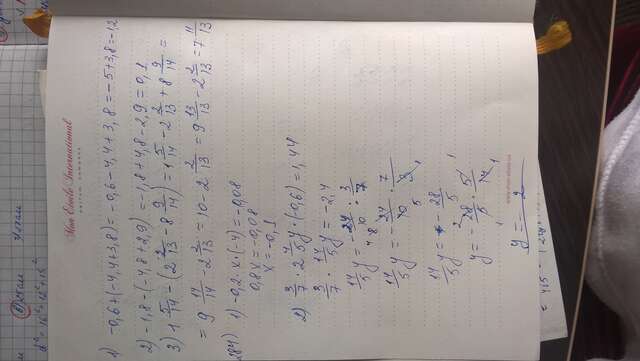 d² = 16² + 12² + 15²
Mon École International
1) -0,6+(-4,4+3,8)= -0,6-4,4+3,8=-5+3,8=-1,2
2) -1,8-(-4,8+2,9)=-1,8+4,8-2,9=0,1
3) 1 5/14 - (2 2/13 - 8 9/14) = 1 5/14 - 2 2/13 + 8 9/14 =
= 9 14/14 - 2 2/13 = 10 - 2 2/13 = 9 13/13 - 2 2/13 = 7 11/13
284) 1) -0,2·x·(-4)=-0,08
0,8x=-0,08
x=-0,1
2) 3/7 · 2 4/5 y·(-0,6)=1,44
3/7 · 14/5 y=-2,4
14/5 y=-24/10 : 3/7
14/5 y=-24/10 · 7/3
14/5 y= -28/5
y=-28/5 · 5/14
y=-2